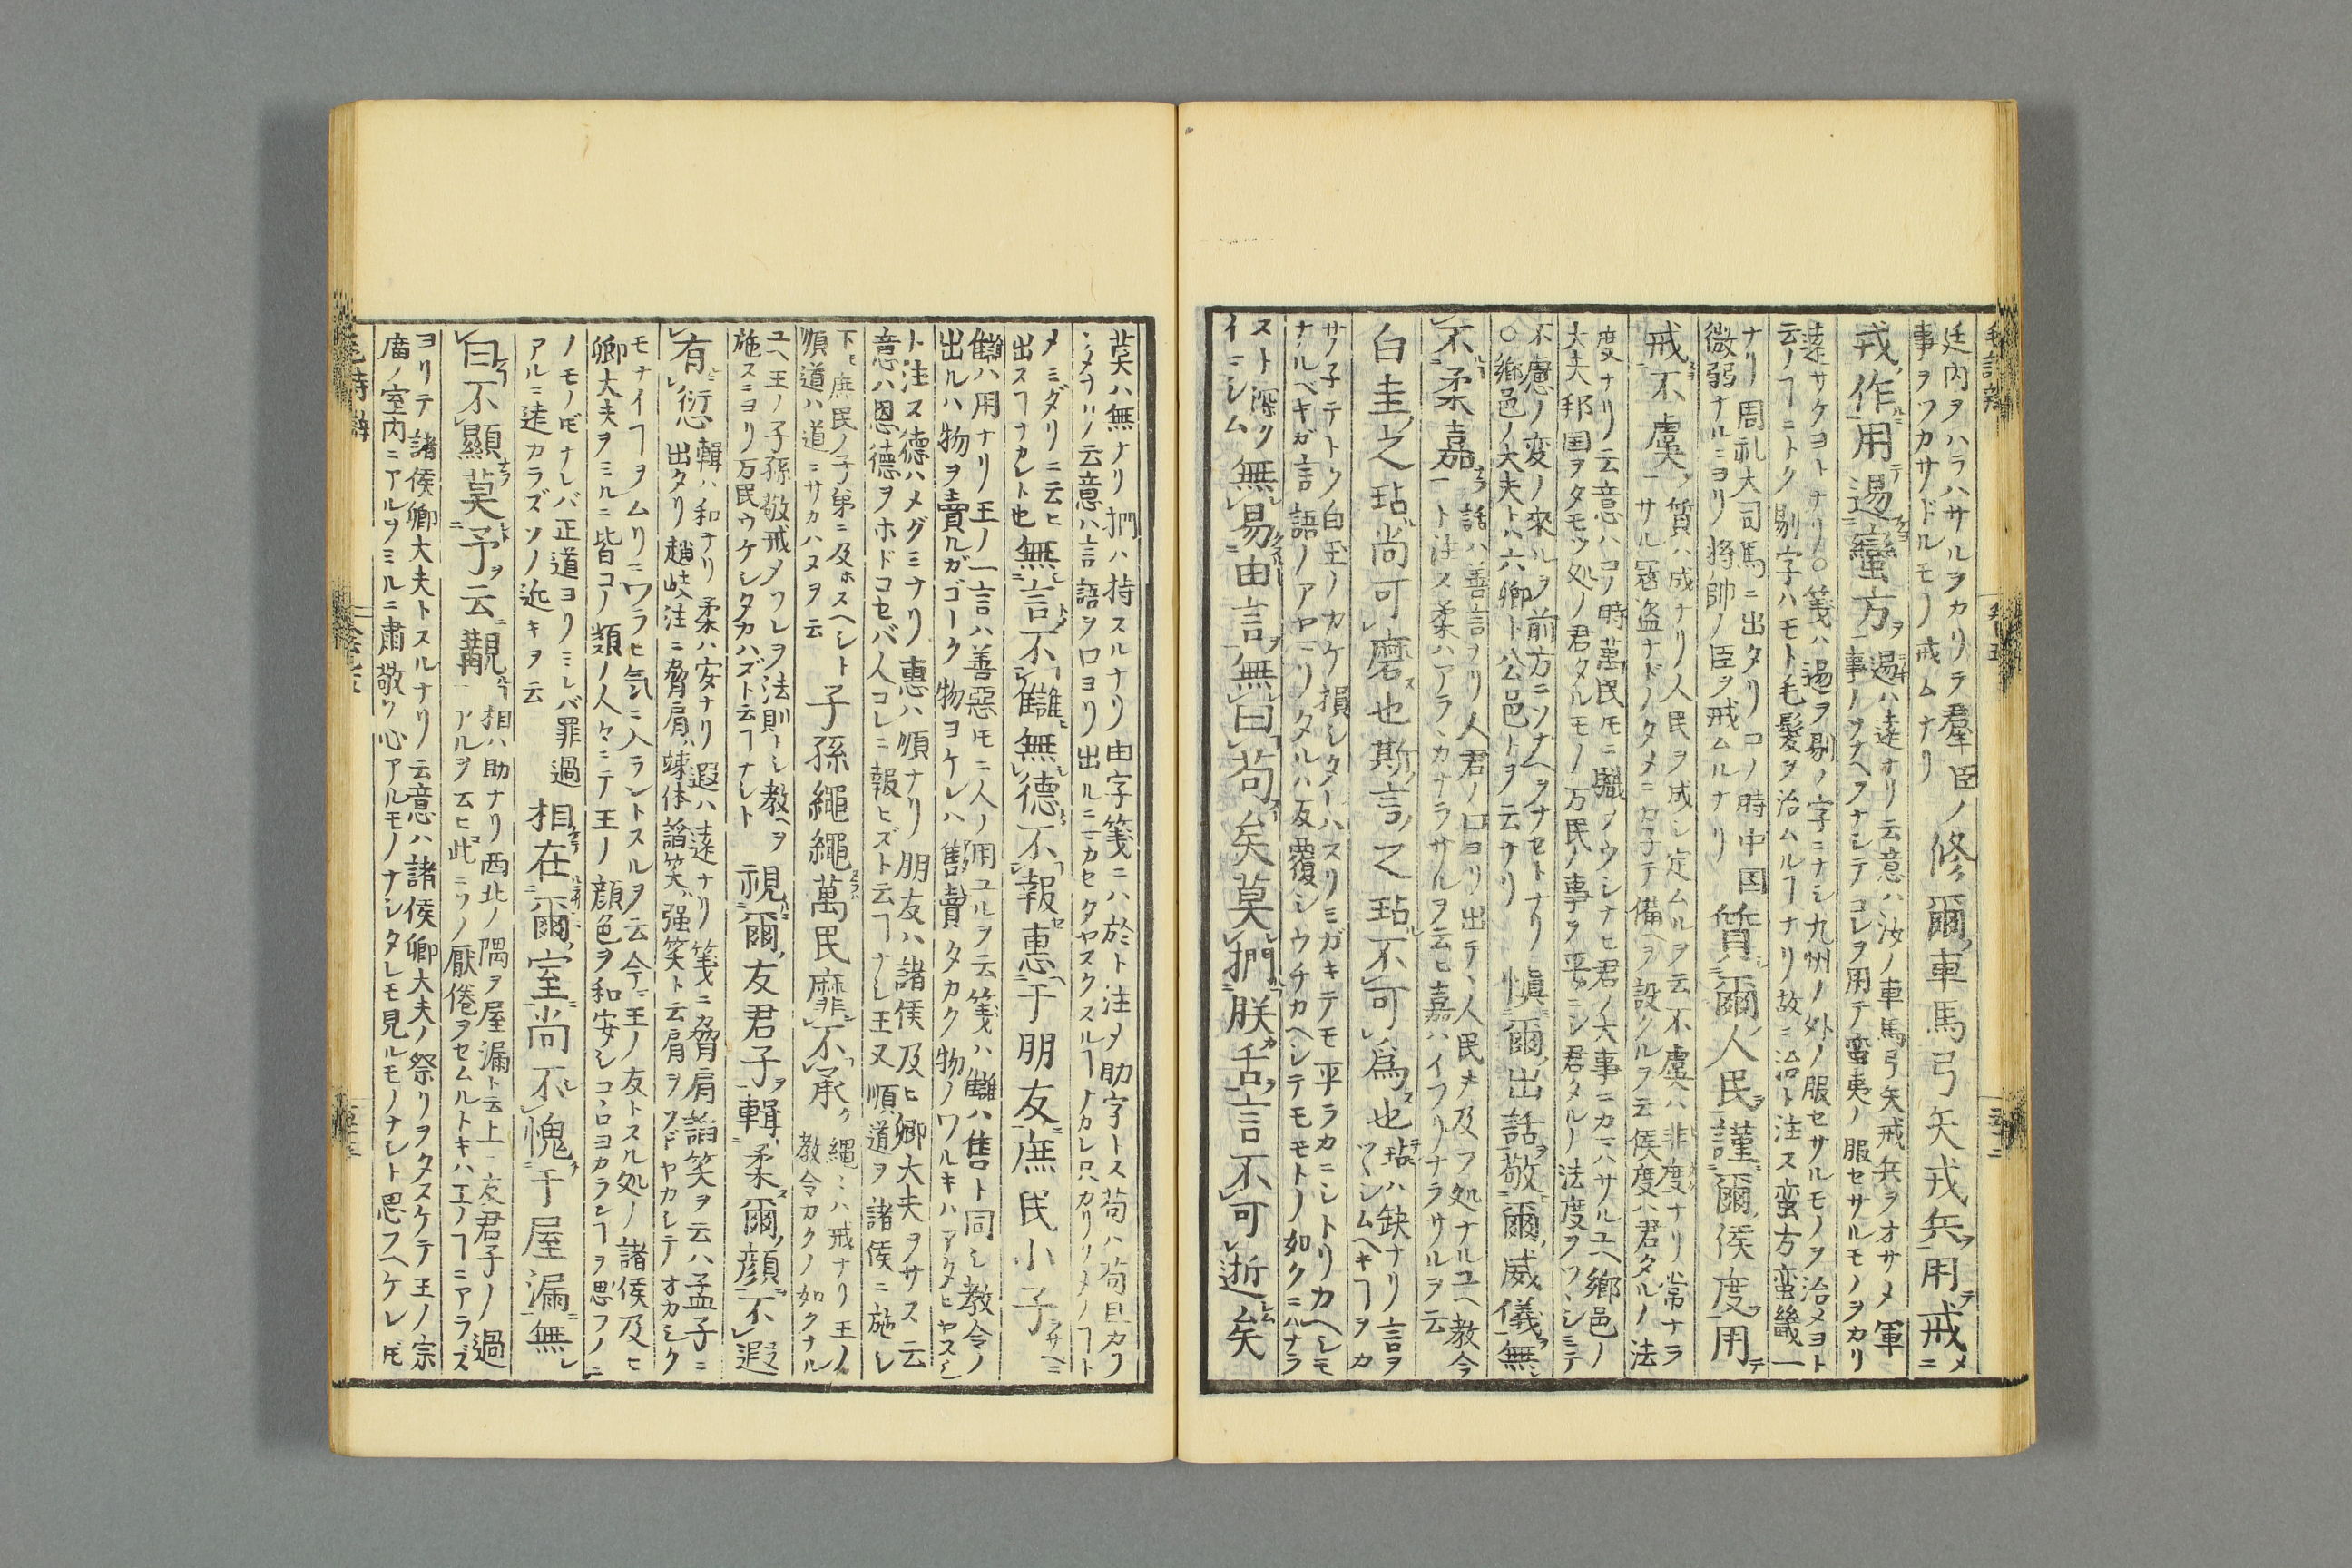 廷内ヲハラハサルヲカリテ羣臣ノ
事ヲフカサドルモノ戒ムナリ
修爾車馬弓矢戎兵用戒
戎作用逷蠻方
逷ハ遠オリ云意ハ汝ノ車馬弓矢戒兵ヲオサメ軍
事ノソナヘヲナシテコレヲ用テ蛮夷ノ服セサルモノヲカリ
遠サケヨトナリ○箋ハ逷ヲ剔ノ字ニナシ九州ノ外ノ服セサルモノヲ治メヨト
云ノヿニトク剔字ハモト毛髪ヲ治ムルヿナリ故ニ治ト注ス蛮方蛮畿一
ナリ周礼大司馬ニ出タリコノ時中国
微弱ナルニヨリ将帥ノ臣ヲ戒ムルナリ
質爾人民謹爾侯度用
戒不虞
質ハ成ナリ人民ヲ成シ定ムルヲ云不虞ハ非度ナリ常ナラ
サル冦盗ナドノタメニカ子テ備ヘヲ設クルヲ云侯度ハ君タルノ法
度ナリ云意ハコノ時萬民ㇳモニ職ヲウシナヒ君ノ大事ニカマハサルユヘ郷邑ノ
大夫邦国ヲタモツ処ノ君タルモノ万民ノ事ヲ平ニシ君タルノ法度ヲツヽシミテ
不慮ノ変ノ來ルヲ前方ニソナヘヲナセトナリ
○郷邑ノ大夫ト六卿ト公邑トヲ云ナリ
愼爾出話敬爾威儀無
不柔嘉
話ハ善言ヲリ人君ノ口ヨリ出テ人民ㇸ及フ処ナルユヘ教令
ト注ス柔ハアラヽカナラサルヲ云ヒ嘉ハイフリナラサルヲ云
白圭之玷尚可磨也斯言之玷不可爲也
玷ハ缺ナリ言ヲ
ツヽシムヘキヿヲカ
サノ子テトク白玉ノカケ損シタハスリミガキテモ平ラカニシトリカヘシモ
ナルベキガ言語ノアヤマリタルハ反覆シウチカヘシテモモトノ如クニハナラ
スト深ク
イマシム
無易由言無曰苟矣莫捫朕舌言不可逝矣
莫ハ無ナリ捫ハ持スルナリ由字箋ニハ於ト注メ助字トス苟ハ苟且カリ
ソメナリ云意ハ言語ヲ口ヨリ出ルニマカセタヤスクスルヿナカレ只カリソメノヿト
メミダリニ云ヒ
出スヿナカレト也
無言不讎無德不報惠于朋友庶民小子
讎ハ用ナリ王ノ一言ハ善惡ㇳモニ人ノ用ユルヲ云箋ハ讎ハ售ト同シ教令ノ
出ルハ物ヲ賣ルガゴトク物ヨケレハ售賣タカク物ノワルキハアタヒヤスシ
ト注ス德ハメグミナリ惠ハ順ナリ朋友ハ諸侯及ヒ卿大夫ヲサス云
意ハ恩德ヲホドコセバ人コレニ報ヒズト云ヿナシ王又順道ヲ諸侯ニ施シ
下モ庶民ノ子弟ニ及ホスヘシト
順道ハ道ニサカハヌヲ云
子孫繩繩萬民靡不承
繩〻ハ戒ナリ王ノ
教令カクノ如クナル
ユヘ王ノ子孫敬戒メソレヲ法則トシ教ヘヲ
施スニヨリ万民ウケシタカハズト云ヿナシト
視爾友君子輯柔爾顔不遐
有愆
輯ハ和ナリ柔ハ安ナリ遐ハ遠ナリ箋ニ脅肩謟笑ヲ云ハ孟子ニ
出タリ趙岐注ニ脅肩竦体謟笑强笑ト云肩ヲソビヤカシテオカシク
モナイヿヲムリニワラヒ気ニ入ラントスルヲ云今王ノ友トスル処ノ諸侯及ヒ
卿大夫ヲミルニ皆コノ類ノ人々ニテ王ノ顔色ヲ和安シコヽロヨカラシヿヲ思フノミ
ノモノㇳモナレバ正道ヨリミレバ罪過
アルニ遠カラズソノ近キヲ云
相在爾室尚不愧于屋漏無
曰不顯莫予云覯
相ハ助ナリ西北ノ隅ヲ屋漏ト云上ノ友君子ノ過
アルヲ云ヒ此ニソノ厭倦ヲセムルトキハ王ノヿニアラズ
ヨリテ諸侯卿大夫トスルナリ云意ハ諸侯卿大夫ノ祭リヲタスケテ王ノ宗
廟ノ室内ニアルヲミルニ肅敬ノ心アルモノナシタレモ見ルモノナシト思フヘケレㇳモ